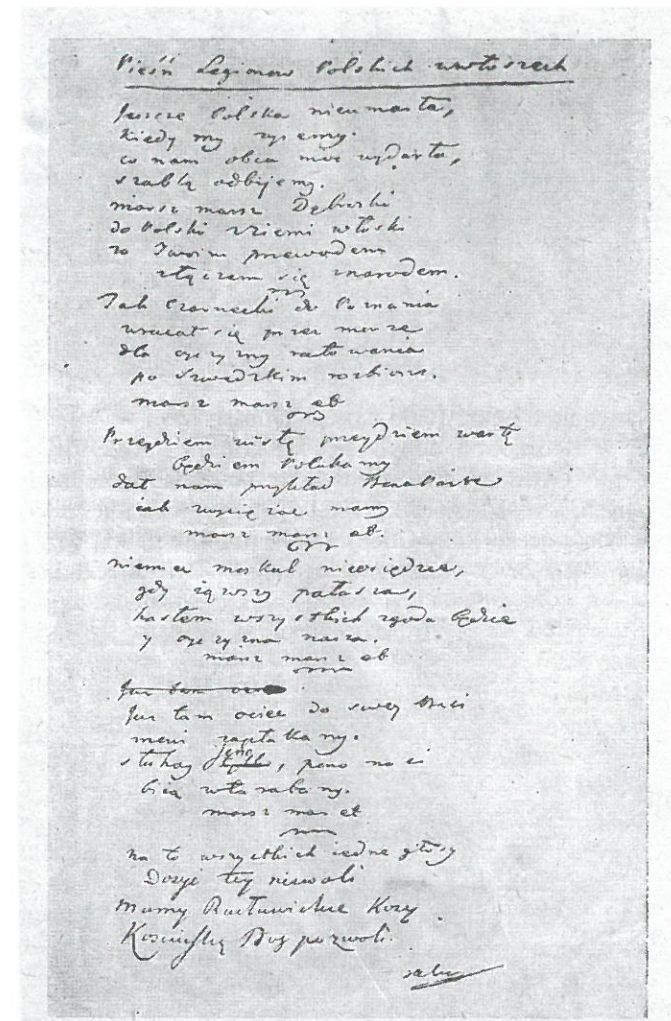 Pieśń Legionow Polskich we włoszech
Jeszcze Polska nieumarła,
kiedy my żyiemy.
co nam obca moc wydarła,
szablą odbijemy.
marsz marsz Dąbroski
do Polski z ziemi włoski
za Twoim przewodem
złączem się z narodem.
Jak Czarnecki do Poznania
wracał się przez morze
dla oyczyzny ratowania
po Szwedzkim rozbiorze.
marsz marsz etc
Przeydziem wisłę przeydziem wartę
będziem Polakamy
dał nam przykład Bonaparte
iak zwyciężać mamy
marsz marsz etc.
niemiec moskal nieosiędzie,
gdy iąwszy pałasza,
hasłem wszystkich zgoda będzie
y oyczyzna nasza.
marsz marsz etc
Już tam
Już tam ociec do swey Basi
mówi zapłakany.
słuchay ieno, pono nasi
biią w tarabany.
marsz marsz etc
na to wszystkich iedne głosy
Dosyć tey niewoli
mamy Racławickie Kosy
Kosciuszkę Bog pozwoli.